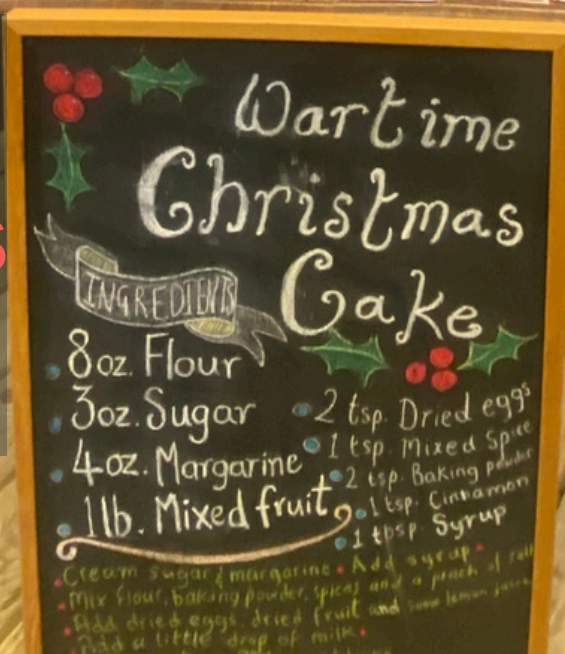 Wartime
Christmas
Cake
INGREDIENTS
8oz. Flour
3oz. Sugar
4oz. Margarine
1lb. Mixed fruit
2 tsp. Dried eggs
1 tsp. Mixed Spice
2 tsp. Baking powder
1 tsp. Cinnamon
1 tbsp. Syrup
Cream sugar & margarine • Add syrup •
• Mix flour, baking powder, spices and a pinch of salt
• Add dried eggs, dried fruit and some lemon juice
• Add a little drop of milk •